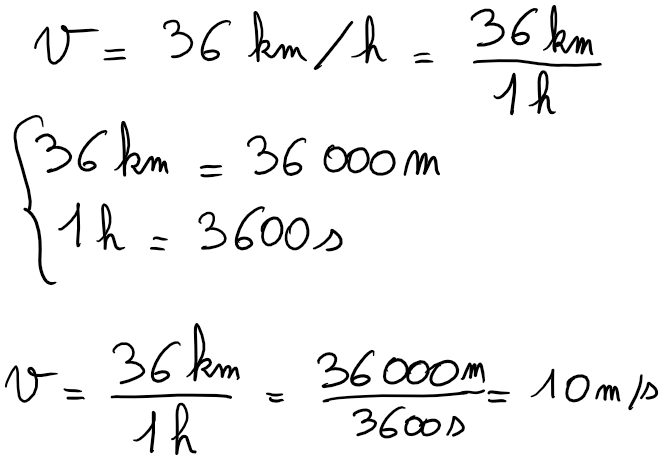 v = 36 km/h = 36 km / 1 h
36 km = 36 000 m
1 h = 3600 s
v = 36 km / 1 h = 36 000 m / 3600 s = 10 m/s